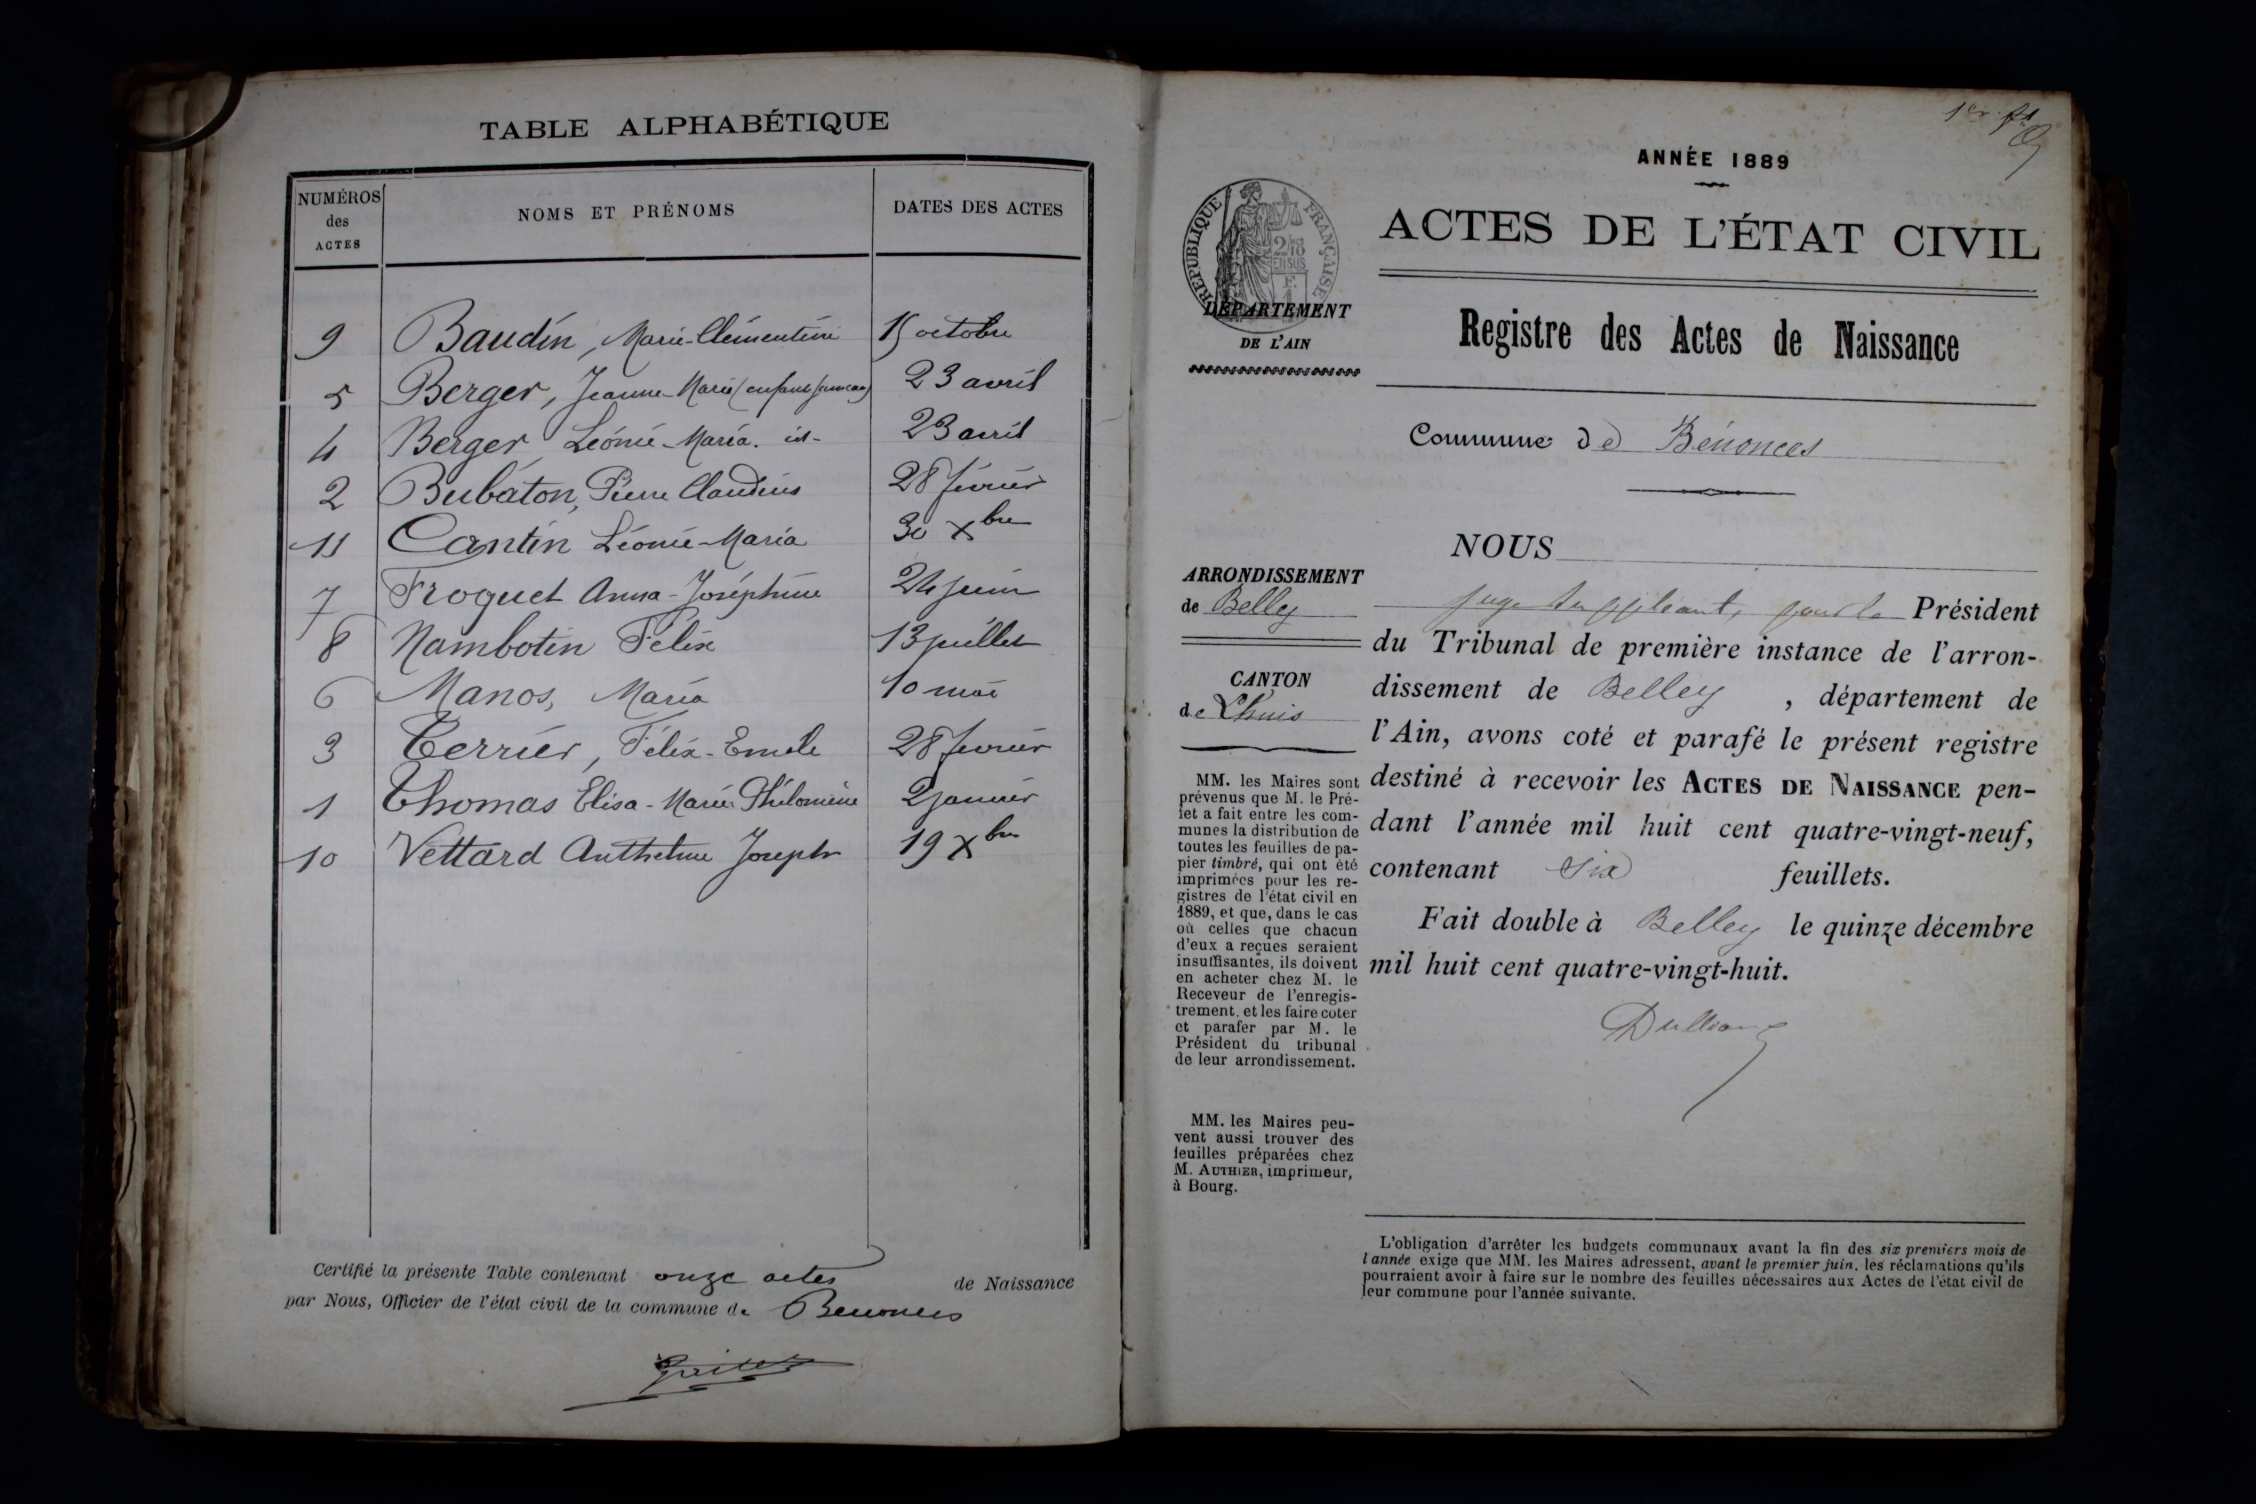 TABLE ALPHABÉTIQUE
NUMÉROS des ACTES
NOMS ET PRÉNOMS
DATES DES ACTES
9 Baudin, Marie-Clémentine 15 octobre
5 Berger, Jeanne-Marie (enfants jumeaux) 23 avril
4 Berger Léonie-Maria. id- 23 avril
2 Bubaton, Pierre Claudius 28 février
11 Cantin Léonie-Maria 30 Xbre
7 Froguet Anna-Joséphine 24 juin
8 Nambotin Félix 13 juillet
6 Manos, Maria 10 mai
3 Terrier, Félix-Emile 28 février
1 Thomas Elisa-Marie Philomène 2 janvier
10 Vettard Anthelme Joseph 19 Xbre
Certifié la présente Table contenant onze actes de Naissance
par Nous, Officier de l'état civil de la commune de Benonces
1er ft
ANNÉE 1889
RÉPUBLIQUE FRANÇAISE
2/10 EN SUS
DÉPARTEMENT
DE L'AIN
ACTES DE L'ÉTAT CIVIL
Registre des Actes de Naissance
Commune de Bénonces
NOUS
ARRONDISSEMENT
de Belley
CANTON
de Lhuis
juge suppléant, pour le Président
du Tribunal de première instance de l'arron-
dissement de Belley, département de
l'Ain, avons coté et parafé le présent registre
destiné à recevoir les ACTES DE NAISSANCE pen-
dant l'année mil huit cent quatre-vingt-neuf,
contenant six feuillets.
Fait double à Belley le quinze décembre
mil huit cent quatre-vingt-huit.
MM. les Maires sont
prévenus que M. le Pré-
fet a fait entre les com-
munes la distribution de
toutes les feuilles de pa-
pier timbré, qui ont été
imprimées pour les re-
gistres de l'état civil en
1889, et que, dans le cas
où celles que chacun
d'eux a reçues seraient
insuffisantes, ils doivent
en acheter chez M. le
Receveur de l'enregis-
trement, et les faire coter
et parafer par M. le
Président du tribunal
de leur arrondissement.
MM. les Maires peu-
vent aussi trouver des
feuilles préparées chez
M. AUTHIER, imprimeur,
à Bourg.
L'obligation d'arrêter les budgets communaux avant la fin des six premiers mois de
l'année exige que MM. les Maires adressent, avant le premier juin, les réclamations qu'ils
pourraient avoir à faire sur le nombre des feuilles nécessaires aux Actes de l'état civil de
leur commune pour l'année suivante.